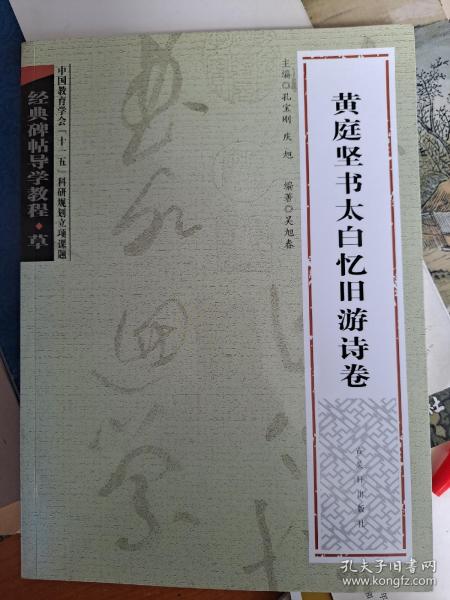 黄庭坚书太白忆旧游诗卷
主编◎孔宝刚 庆旭 编著◎吴旭春
中国教育学会「十一五」科研规划立项课题
经典碑帖导学教程·草
古吴轩出版社
孔夫子旧书网
www.kongfz.com